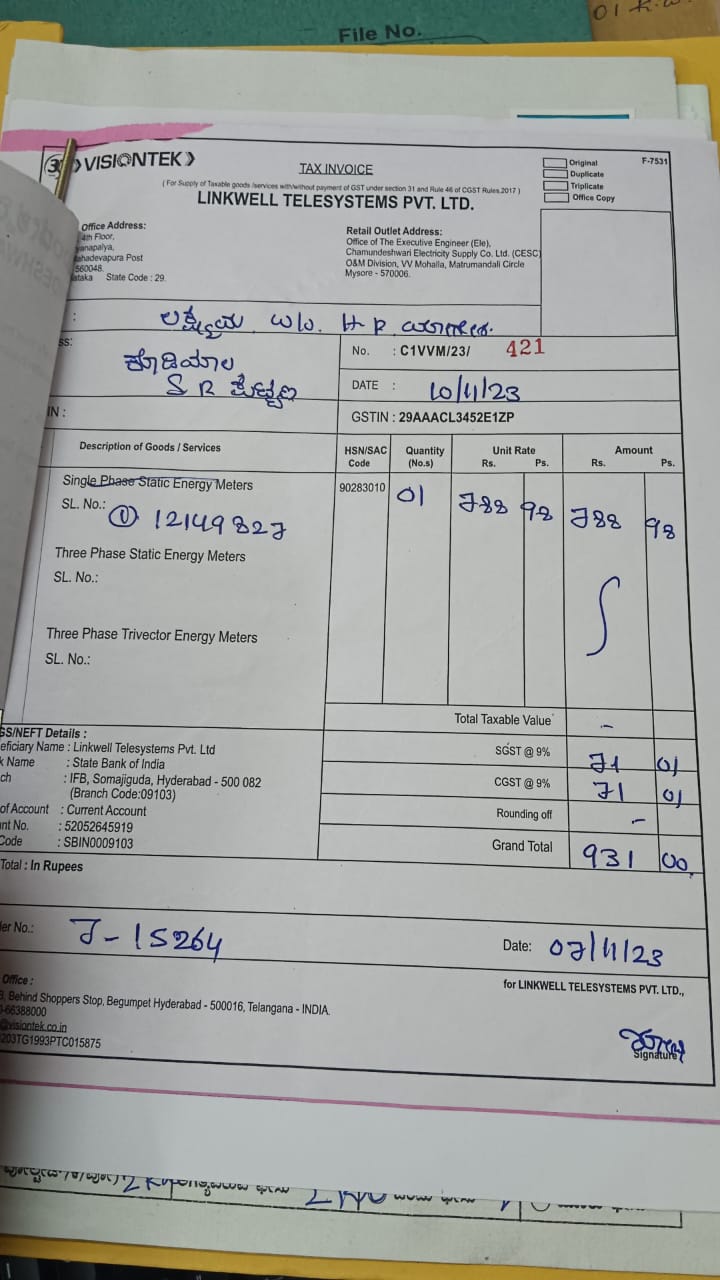 File No.
VISIONTEK
TAX INVOICE
Original
Duplicate
Triplicate
Office Copy
F-7531
( For Supply of Taxable goods /services with/without payment of GST under section 31 and Rule 46 of CGST Rules.2017 )
LINKWELL TELESYSTEMS PVT. LTD.
Office Address:
4th Floor,
560048.
State Code : 29.
Retail Outlet Address:
Office of The Executive Engineer (Ele),
Chamundeshwari Electricity Supply Co. Ltd. (CESC)
O&M Division, VV Mohalla, Matrumandali Circle
Mysore - 570006.
No. : C1VVM/23/ 421
DATE : 10/11/23
GSTIN : 29AAACL3452E1ZP
Description of Goods / Services
HSN/SAC Code
Quantity (No.s)
Unit Rate
Rs. Ps.
Amount
Rs. Ps.
Single Phase Static Energy Meters
90283010 01 788 98 788 98
SL. No.: ① 12149827
Three Phase Static Energy Meters
SL. No.:
Three Phase Trivector Energy Meters
SL. No.:
Total Taxable Value -
SGST @ 9% 71 01
CGST @ 9% 71 01
Rounding off -
Grand Total 931 00
GS/NEFT Details :
eficiary Name : Linkwell Telesystems Pvt. Ltd
Name : State Bank of India
: IFB, Somajiguda, Hyderabad - 500 082
(Branch Code:09103)
of Account : Current Account
nt No. : 52052645919
Code : SBIN0009103
Total : In Rupees
er No.: J-15264
Date: 07/11/23
for LINKWELL TELESYSTEMS PVT. LTD.,
Office :
Behind Shoppers Stop, Begumpet Hyderabad - 500016, Telangana - INDIA.
-66388000
@visiontek.co.in
203TG1993PTC015875
Signature